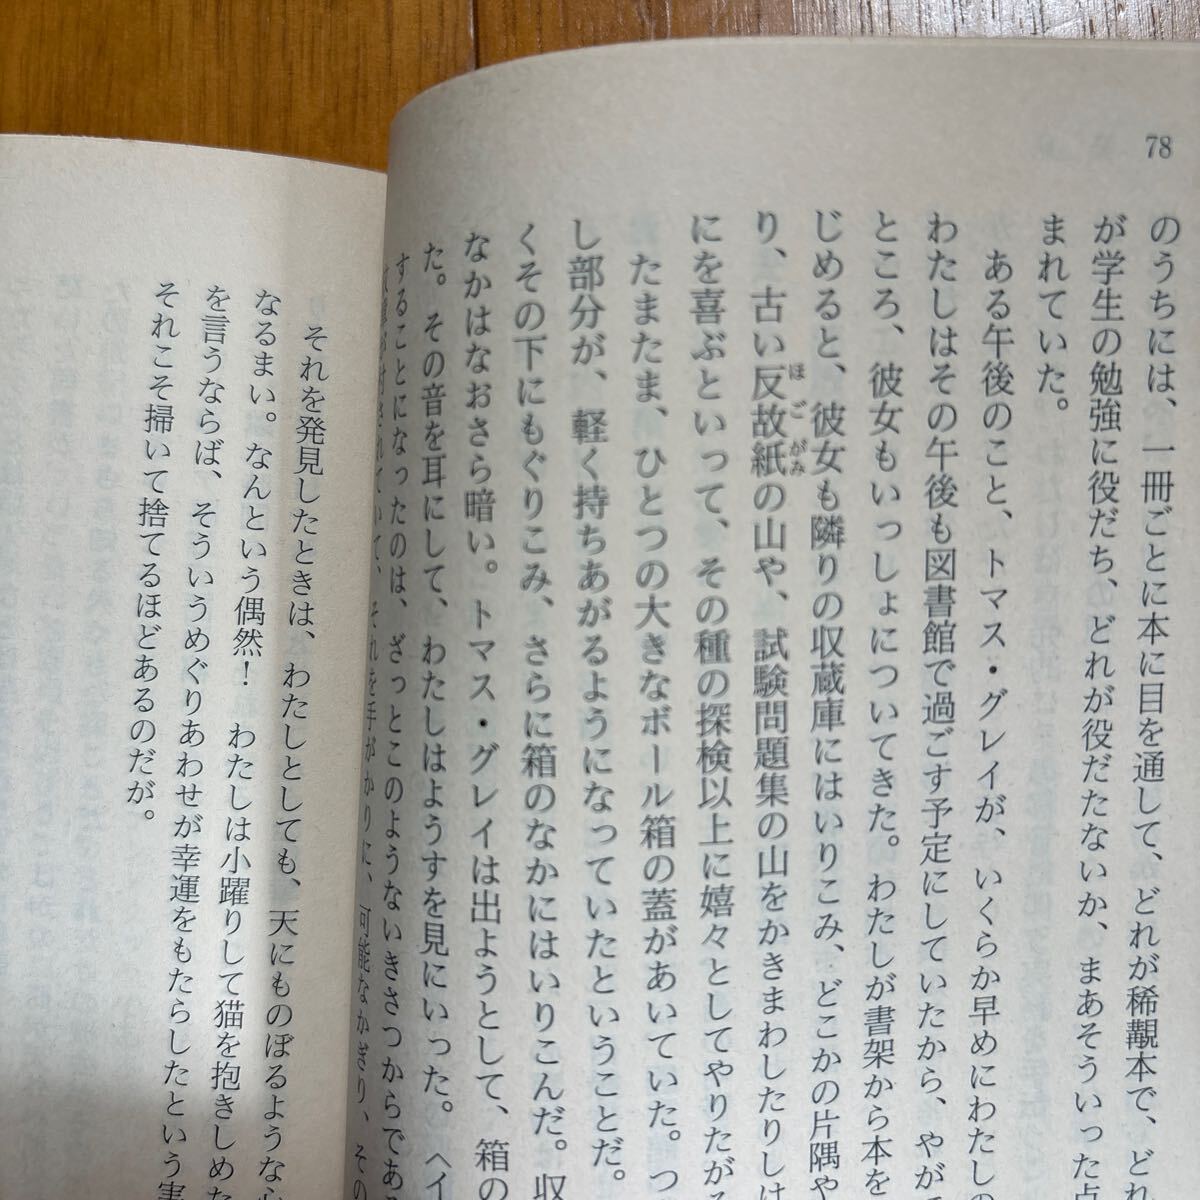 78
のうちには、一冊ごとに本に目を通して、どれが稀覯本で、どれ
が学生の勉強に役だち、どれが役だたないか、まあそういった点
まれていた。
ある午後のこと、トマス・グレイが、いくらか早めにわたしの
わたしはその午後も図書館で過ごす予定にしていたから、やがて
ところ、彼女もいっしょについてきた。わたしが書架から本を
じめると、彼女も隣りの収蔵庫にはいりこみ、どこかの片隅や
り、古い反故紙の山や、試験問題集の山をかきまわしたりしは
ほごがみ
にを喜ぶといって、その種の探検以上に嬉々としてやりたが
たまたま、ひとつの大きなボール箱の蓋があいていた。つ
し部分が、軽く持ちあがるようになっていたということだ。
くその下にもぐりこみ、さらに箱のなかにはいりこんだ。収
なかはなおさら暗い。トマス・グレイは出ようとして、箱の
た。その音を耳にして、わたしはようすを見にいった。〈イ
することになったのは、ざっとこのようないきさつからである
が付されていて、それを手がかりに、可能なかぎり、その
それを発見したときは、わたしとしても、天にものぼるような心
なるまい。なんという偶然！　わたしは小躍りして猫を抱きしめた
を言うならば、そういうめぐりあわせが幸運をもたらしたという実
それこそ掃いて捨てるほどあるのだが。